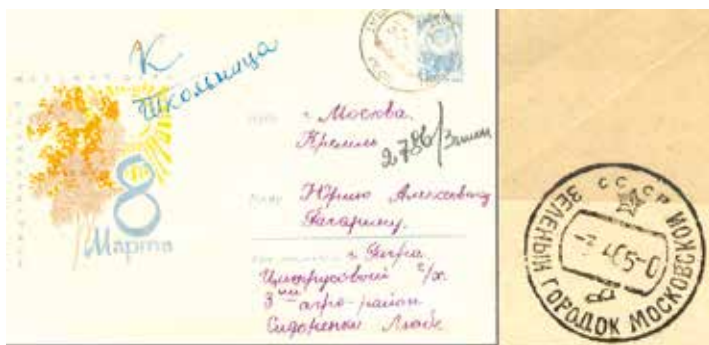 К
Школьница
8
Марта
г. Москва.
Кремль
2786/
Юрию Алексеевичу
Гагарину.
г. Гагра
Цитрусовый с/х.
3ий агро-район
Сидоренки Любы.
СССР
ЗЕЛЕНЫЙ ГОРОДОК МОСКОВСКОЙ